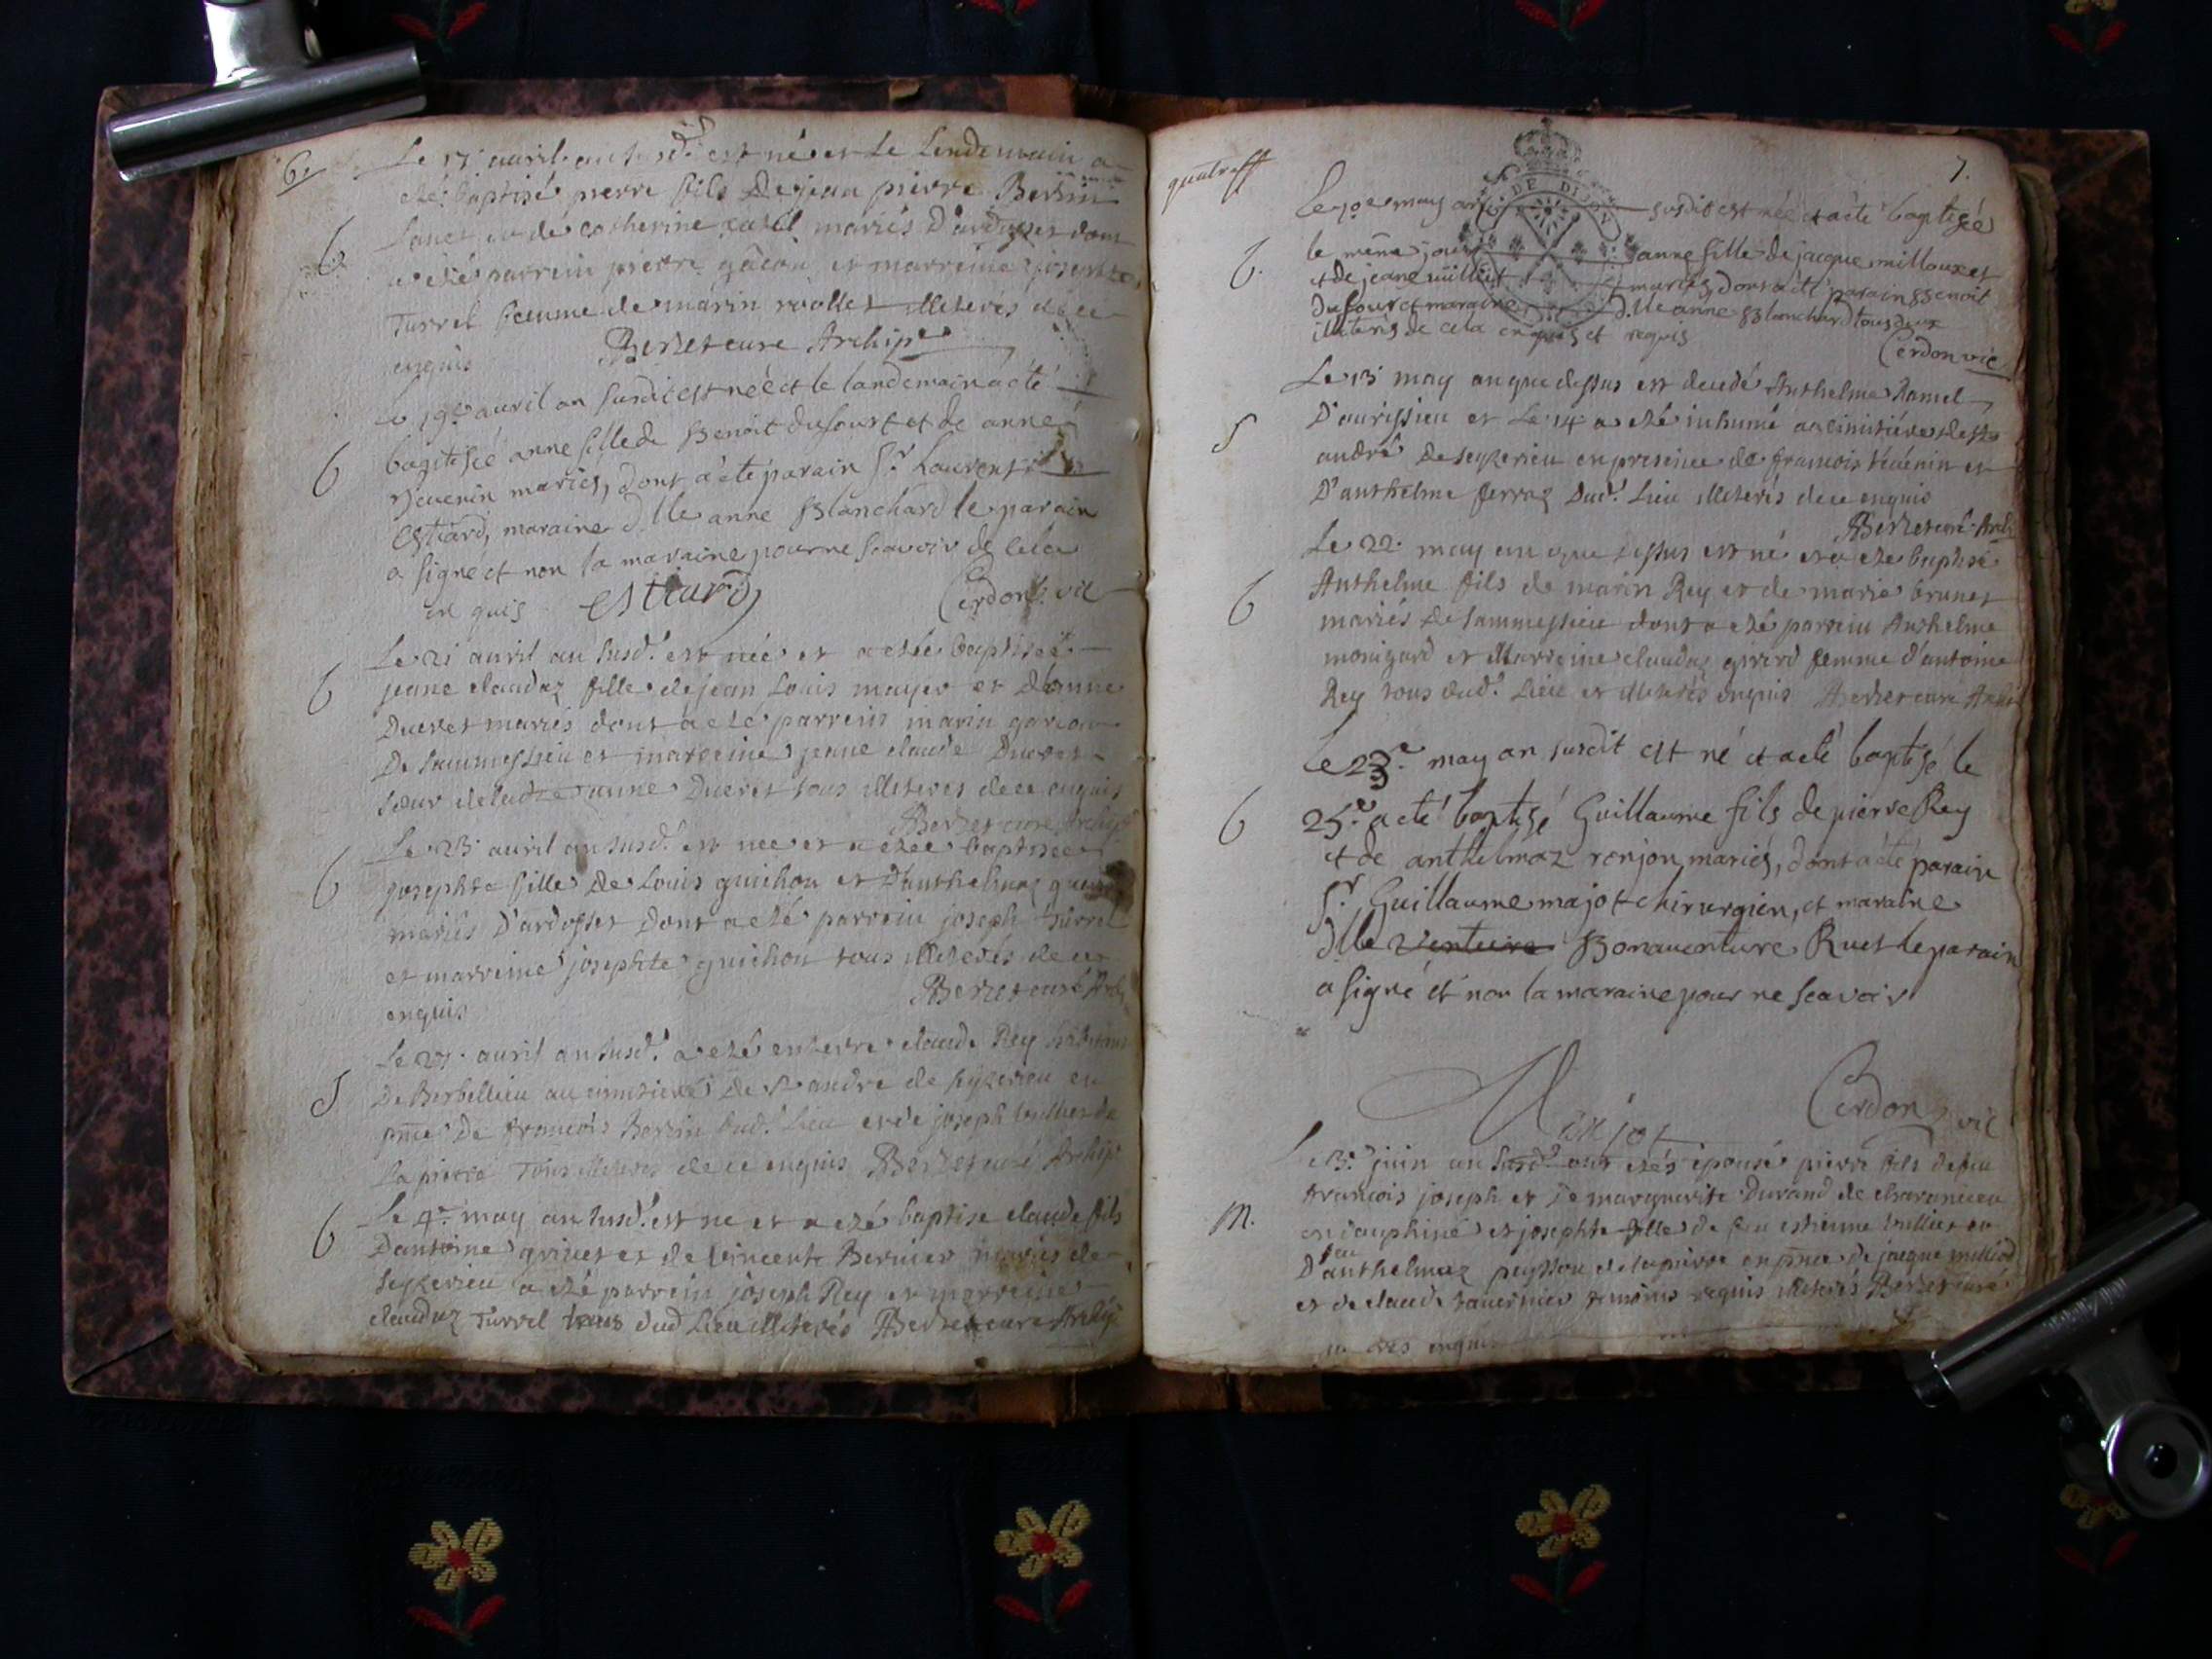 6.
Le 17. auril an susd.t est né et Le Lendemain a
eté baptisé pierre fils De jean pierre Berlin
et de catherine mariés D'ardosset dont
a eté parrein pierre et marreine josephte
Turrel femme de marin roollet illiterés de ce
enquis Berzet cure Archip.e
b
le 19.e auril an susdit est neé et le landemain a eté
b
baptisée anne fille de Benoit dufourt et de anne
teuenin mariés, dont a été parain s.r Laurent
Estiard, maraine d.lle anne Blanchard le parain
a signé et non la maraine pour ne scavoir de cela
en quis estiard Cerdon vic
Le 21 auril an susd.t est née et a etée baptisée
b
jeane claudaz fille de jean Louis mayer et d'anne
Ducret mariés dont a eté parrein marin
De sammessieu et marreine jeane claude Ducret
soeur de ladte anne Ducret tous illiterés de ce enquis
Berzet cure Archip
Le 23. auril an susd.t est née et a etée baptisée
b
josephte fille De Louis guichon et D'anthelmaz
mariés D'ardosset Dont a eté parrein joseph turrel
et marreine josephte guichon tous illiterés de ce
enquis Berzet curé Arch
Le 27. auril an susd.t a eté enterré claude Rey
S
De Berbellieu au cimetiere De St andré de seyzerieu en
pnce De francois Berlin dud.t Lieu et de joseph vulliet de
la pierre Tous illiterés de ce enquis Berzet curé Archip
Le 4.e may an susd.t est né et a eté baptisé claude fils
b
D'antoine et de vincente Bernier mariés de
seyzerieu a eté parrein joseph Rey et marreine
claudaz Turrel tous dud Lieu illiterés Berzet cure Archip
quatre ff
7.
DE DIJON
Le 10e may an susdit est née et a été baptisée
b.
le même jour anne fille de jacque milloux et
et de jeane mariés, dont a été parain Benoit
dufour et maraine D.lle anne Blanchard tous deux
illiterés de cela enquis et requis
Cerdon vic
Le 13. may an que dessus est decedé Anthelme Ramel
D'aurissieu et Le 14 a eté inhumé au cimitiére de st
S
andré de seyzerieu en presence de francois teuenin et
D'anthelme ferraz Dud.t Lieu illiterés de ce enquis
Berzet curé Arch
Le 22. may an que dessus est né et a eté baptisé
b
Anthelme fils de marin Rey et de marie brunet
mariés De sammessieu dont a eté parrein Anthelme
monigard et Marreine claudaz girerd femme d'antoine
Rey tous dud.t Lieu et illiterés enquis Berzet curé Archi
Le 23.e may an susdit est né et a eté baptisé le
b
25.e a eté baptisé Guillaume fils de pierre Rey
et de anthelmaz ronjon mariés, dont a eté parain
s.r Guillaume majot chirurgien, et maraine
d.lle venture Bonaventure Ruet le parain
a signé et non la maraine pour ne scavoir
Majot Cerdon vic
Le 3.e juin an susd.t ont etés épousé pierre fils de feu
francois joseph et De marguerite Durand de charancieu
m.
en Dauphiné et josephte fille de feu estienne vulliet et
D'feu anthelmaz peysson de la pierre en pnce de jacque milliod
et de claude tauernier temoins requis illiterés Berzet curé
enquis